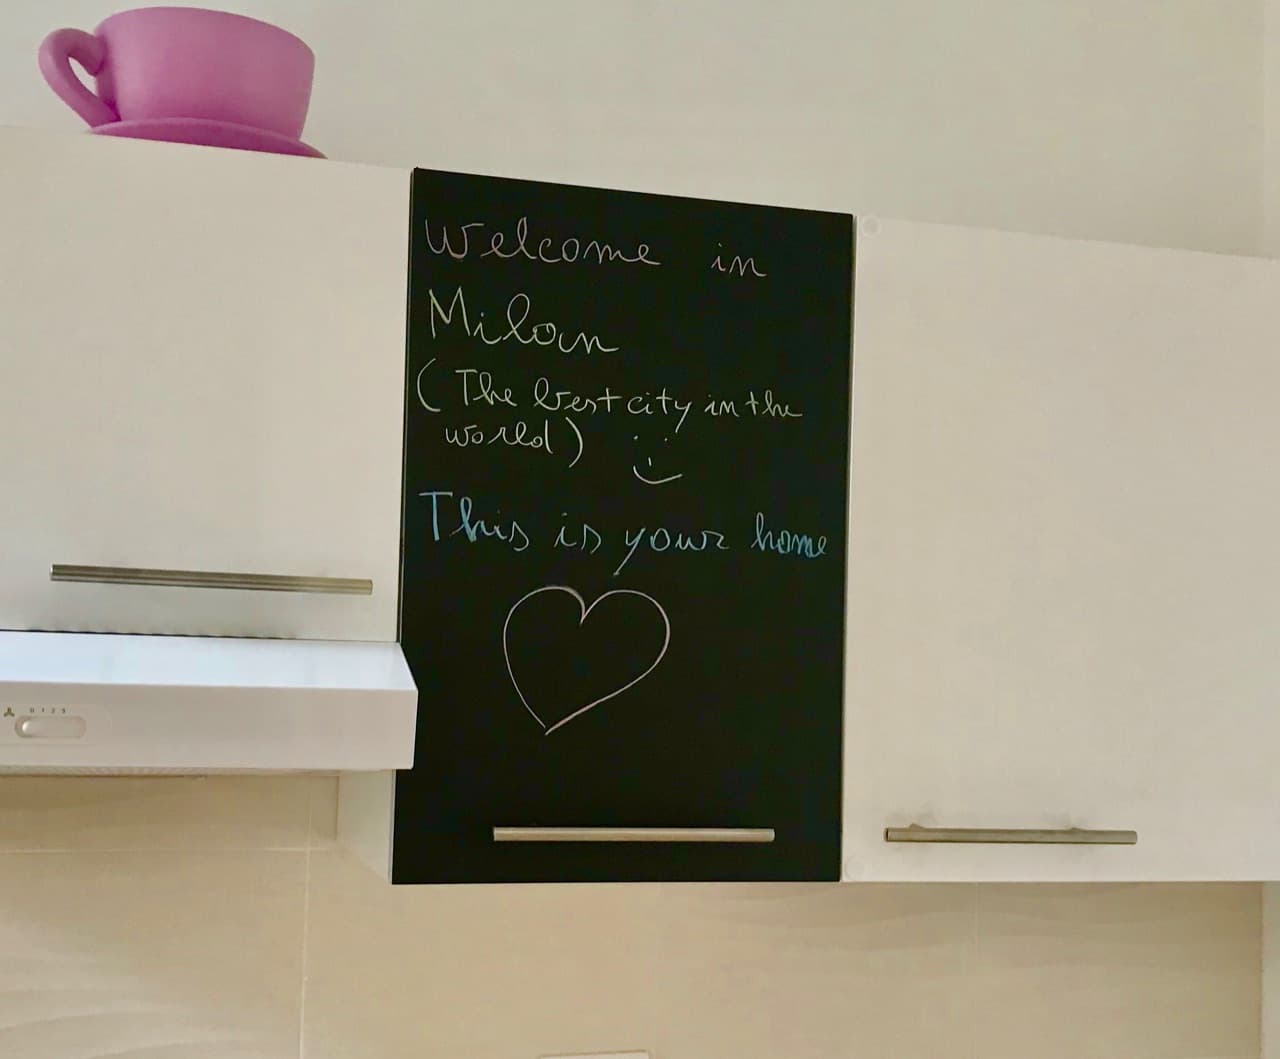 Welcome in
Milan
(The best city in the
world) :)
This is your home
0 1 2 3